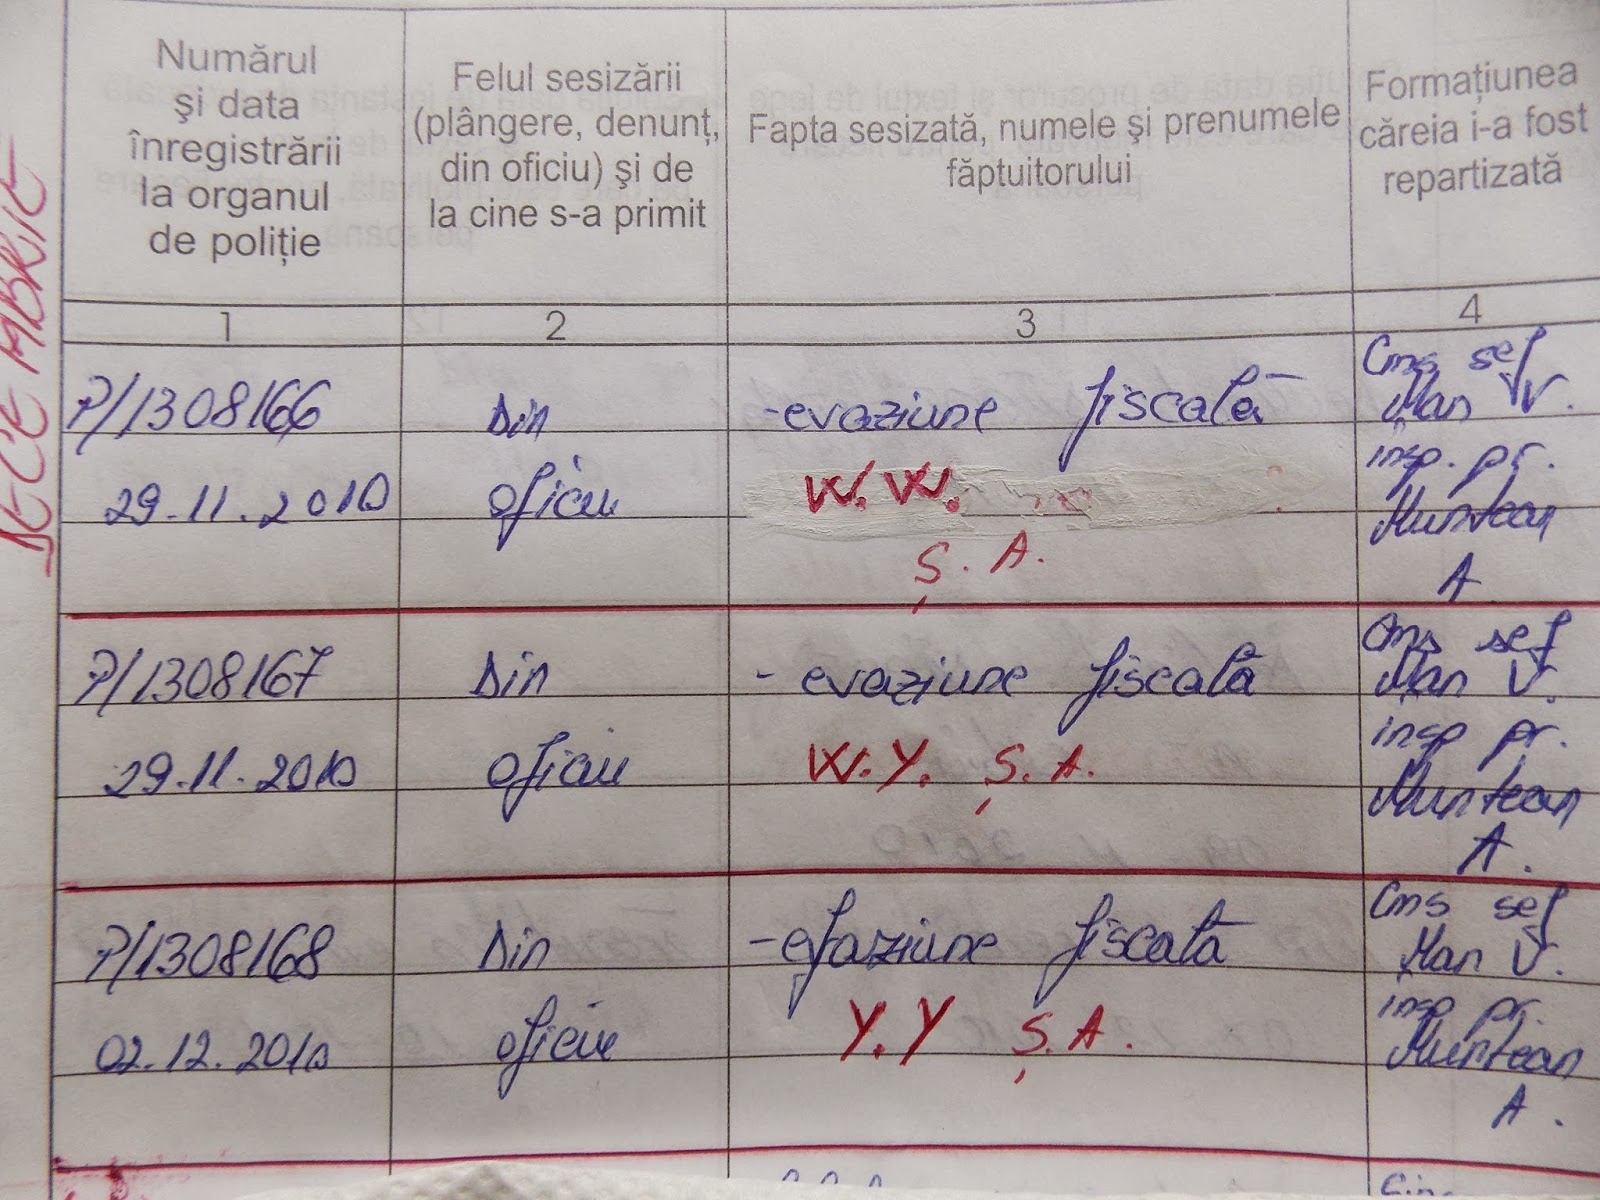 DECEMBRIE
Numărul
și data
înregistrării
la organul
de poliție
Felul sesizării
(plângere, denunț,
din oficiu) și de
la cine s-a primit
Fapta sesizată, numele și prenumele
făptuitorului
Formațiunea
căreia i-a fost
repartizată
1
2
3
4
P/1308166
29.11.2010
Din
oficiu
- evaziune fiscală
W. W.
Ș. A.
Cms șef
Man V.
insp. pr.
Muntean
A
P/1308167
29.11.2010
Din
oficiu
- evaziune fiscală
W. Y. Ș. A.
Cms șef
Man V.
insp pr.
Muntean
A.
P/1308168
02.12.2010
Din
oficiu
- efaziune fiscală
Y. Y Ș. A.
Cms șef
Man V.
insp pr.
Muntean
A.